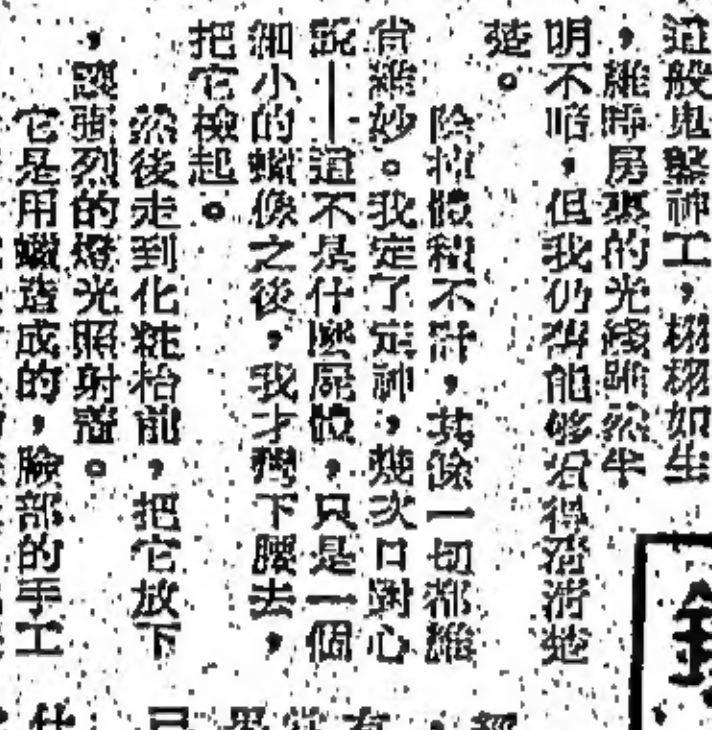 這般鬼斧神工，栩栩如生
，雖時房裏的光綫雖然半
明不暗，但我仍然能够看得清清楚
楚。
除掉體積不計，其餘一切都維
肖維妙。我定了定神，幾次口對心
說——這不是什麼屍體，只是一個
細小的蠟像之後，我才彎下腰去，
把它檢起。
然後走到化粧枱前，把它放下
，讓强烈的燈光照射着。
它是用蠟造成的，臉部的手工